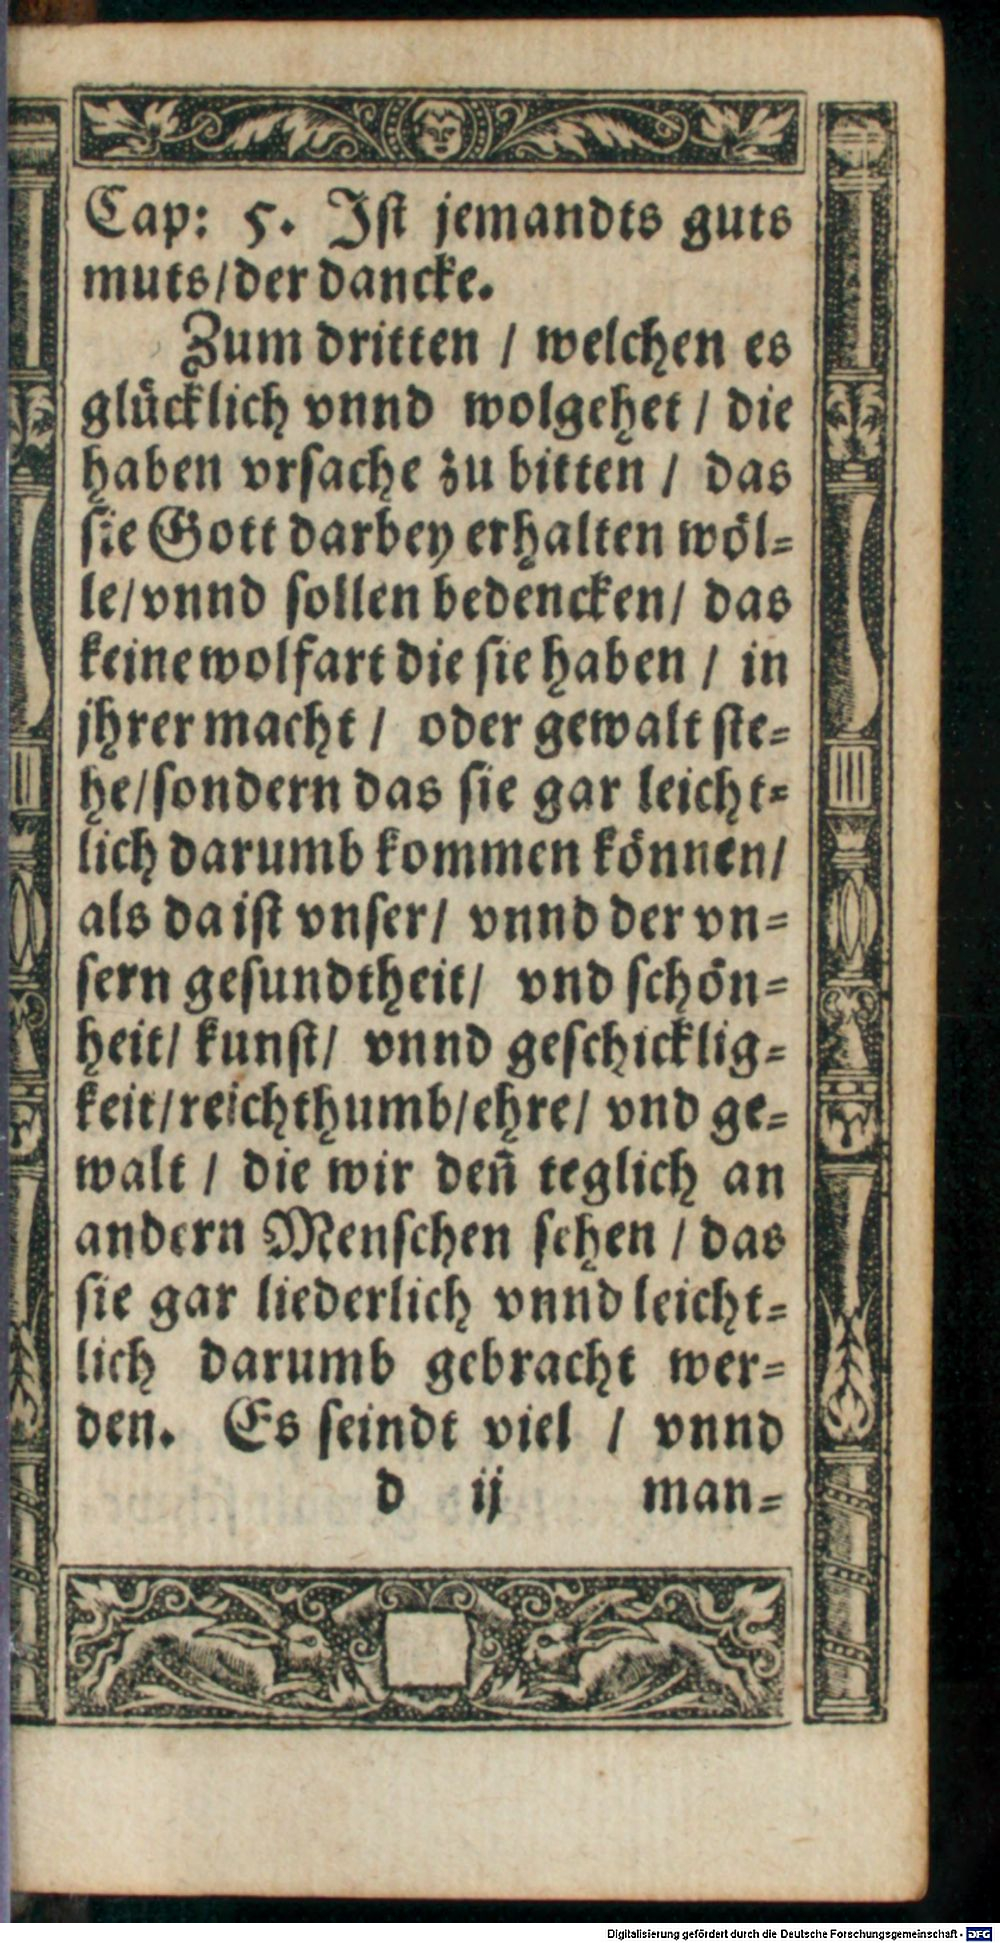 Cap: 5. Iſt jemandts guts
muts/der dancke.
Zum dritten / welchen es
glücklich vnnd wolgehet / die
haben vrſache zu bitten / das
ſie Gott darbey erhalten wöl⸗
le/vnnd ſollen bedencken/ das
keine wolfart die ſie haben / in
jhrer macht / oder gewalt ſte⸗
he/ſondern das ſie gar leicht⸗
lich darumb kommen können/
als da iſt vnſer/ vnnd der vn⸗
ſern geſundtheit/ vnd ſchön⸗
heit/ kunſt/ vnnd geſchicklig⸗
keit/reichthumb/ehre/ vnd ge⸗
walt / die wir den̄ teglich an
andern Menſchen ſehen / das
ſie gar liederlich vnnd leicht⸗
lich darumb gebracht wer⸗
den. Es ſeindt viel / vnnd
d ij man⸗
Digitalisierung gefördert durch die Deutsche Forschungsgemeinschaft - DFG